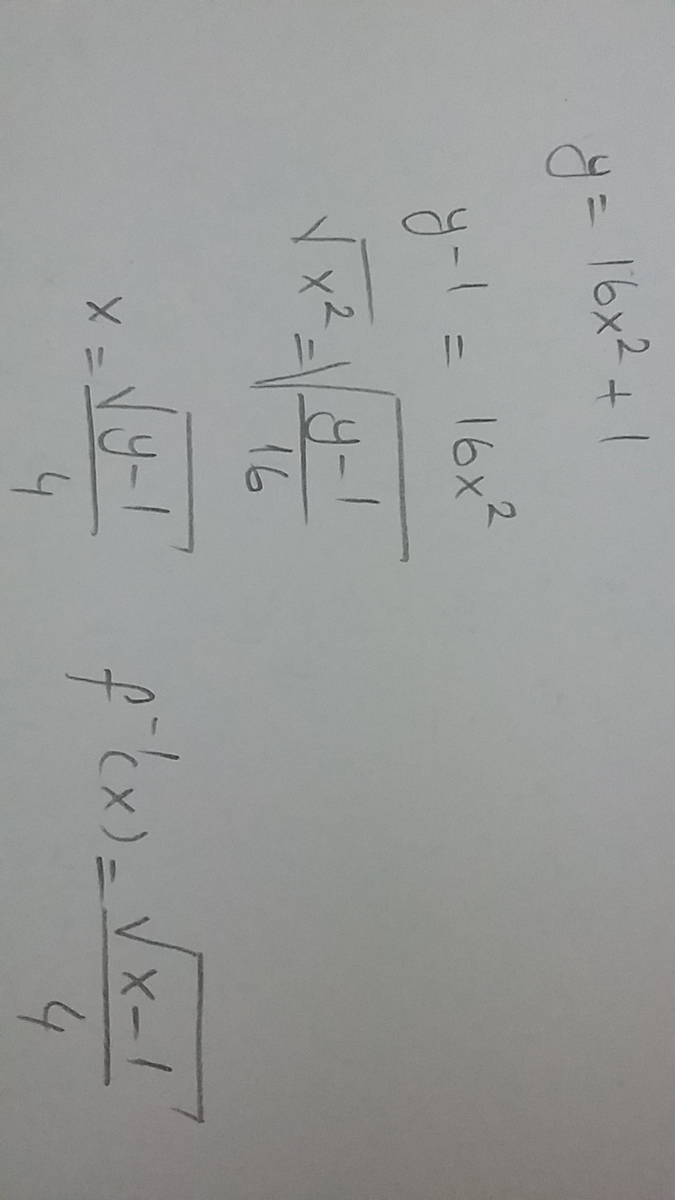 y = 16x² + 1
y - 1 = 16x²
√x² = √((y-1)/16)
x = √(y-1)/4
f⁻¹(x) = √(x-1)/4